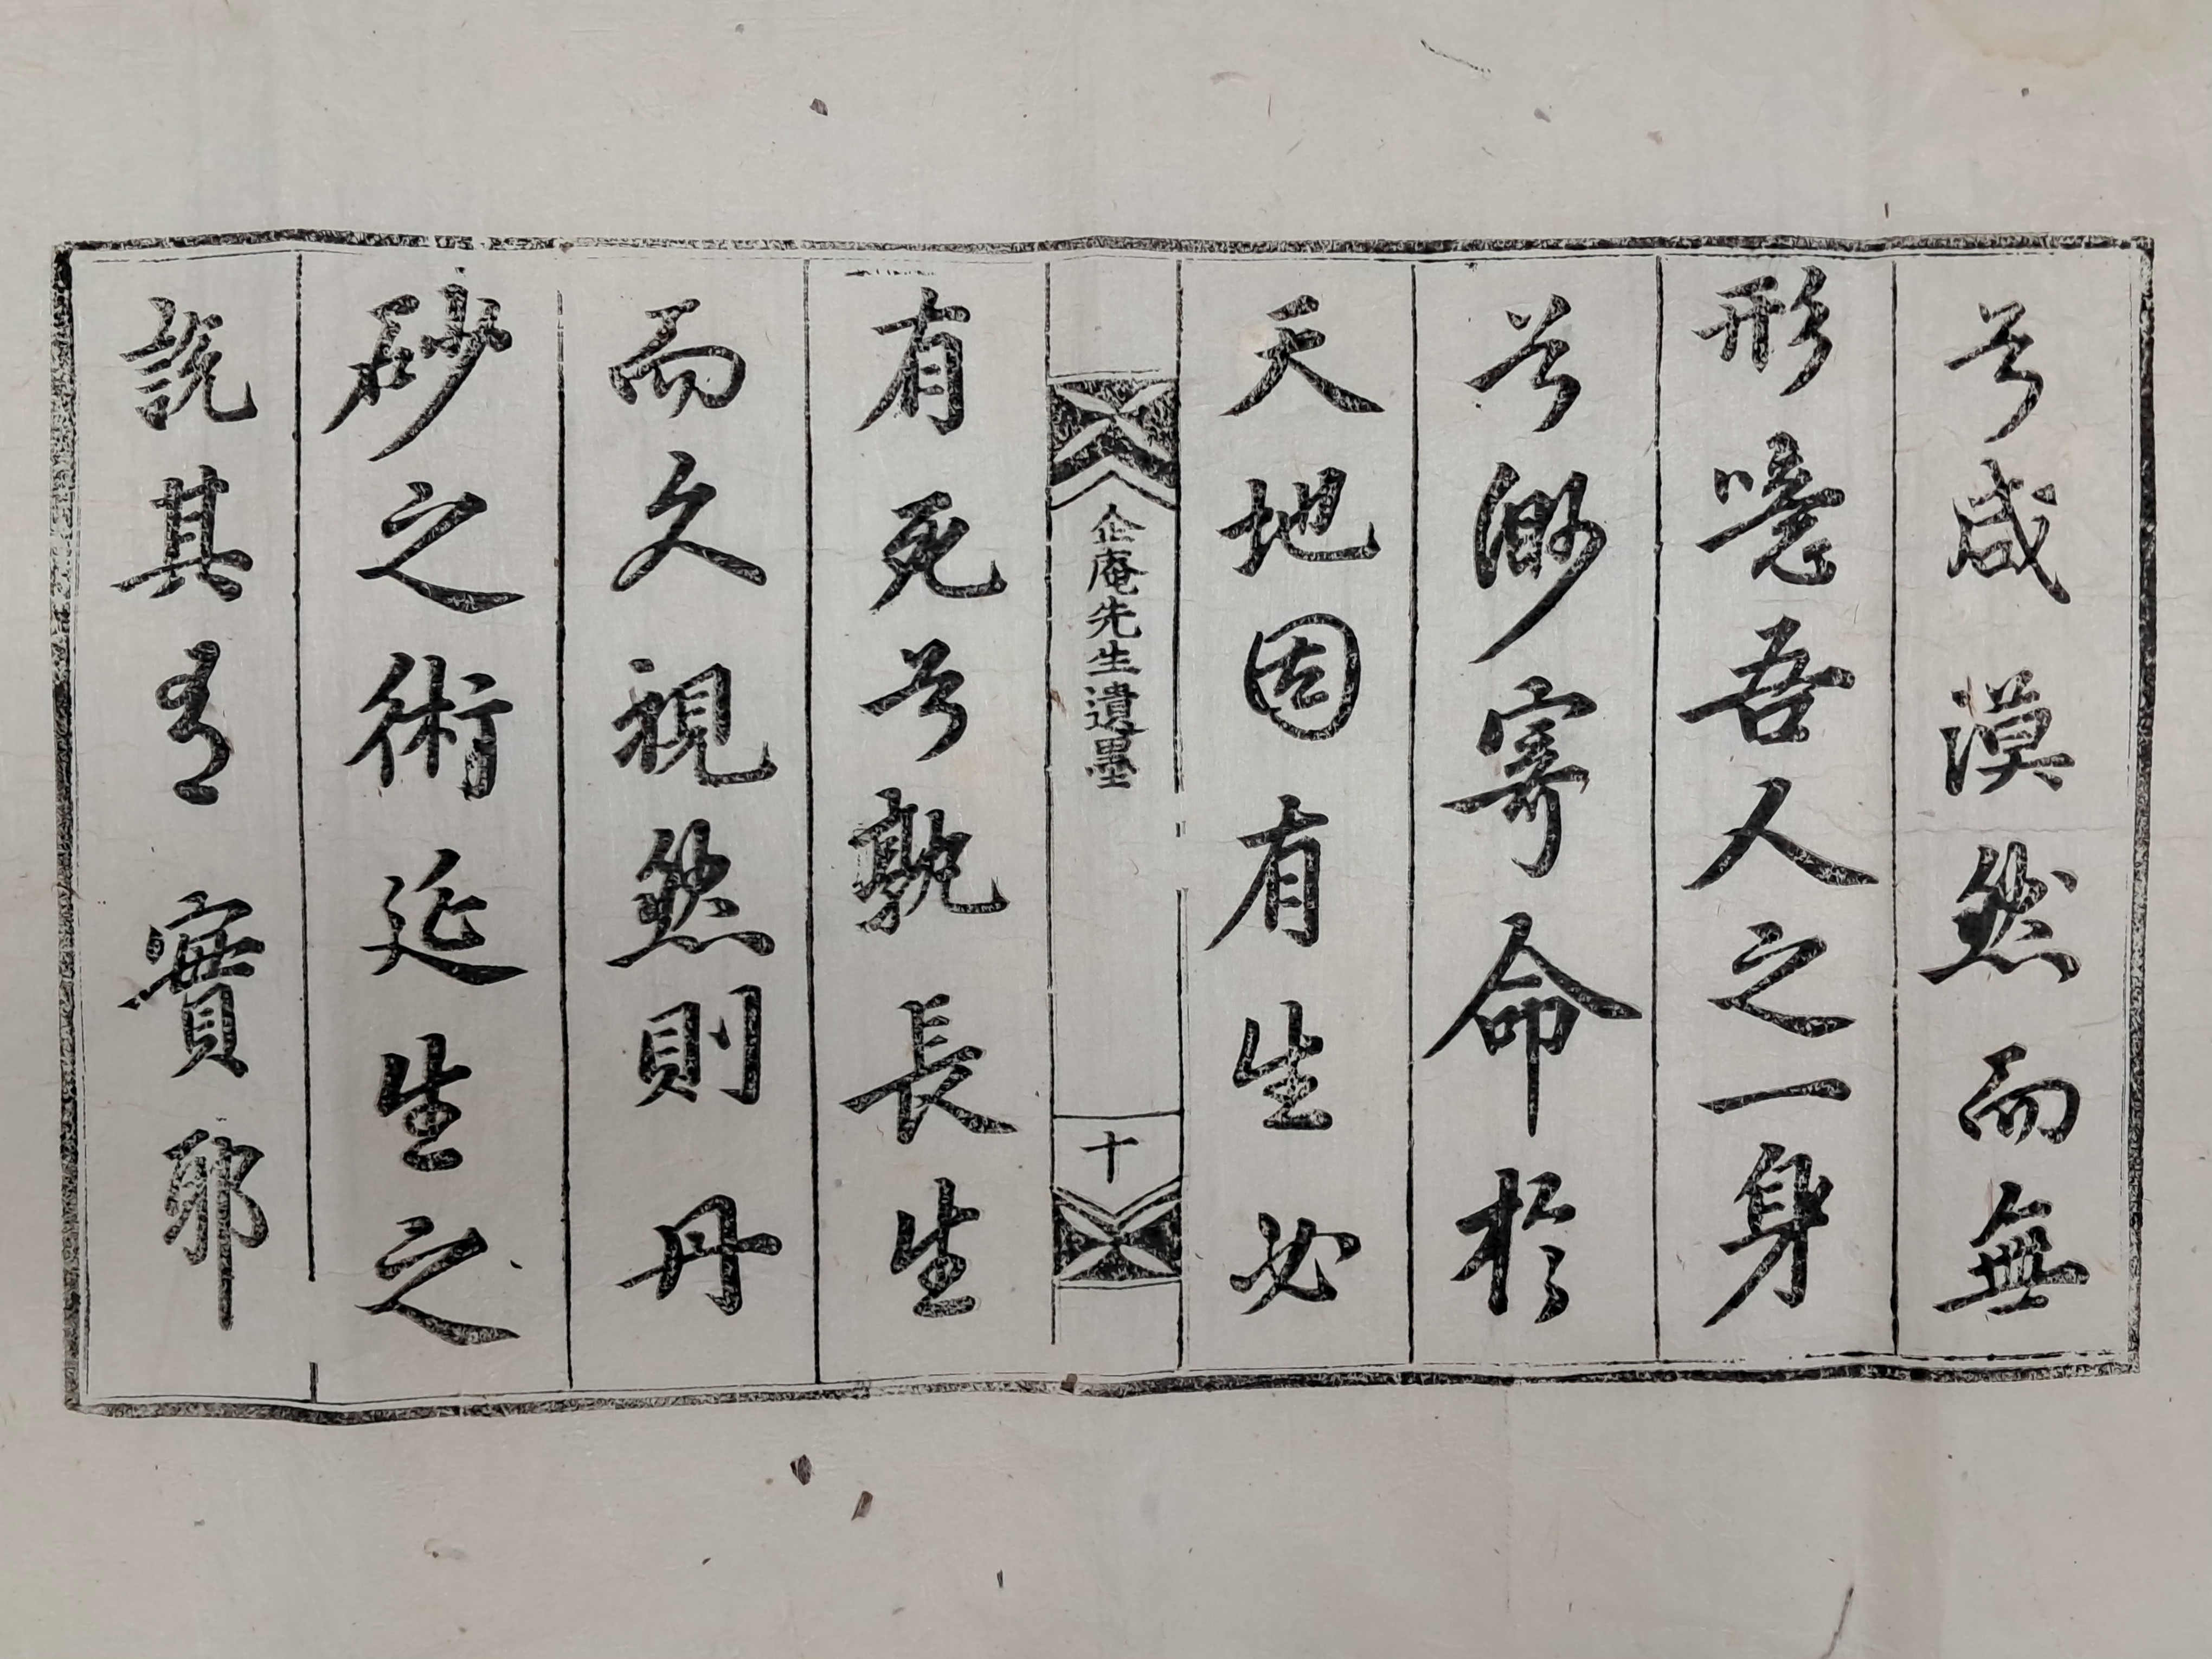 兮咸漠然而無
形噫吾人之一身
兮渺寄命於
天地固有生必
企庵先生遺墨
十
有死兮孰長生
而久視然則丹
砂之術延生之
說其有實耶